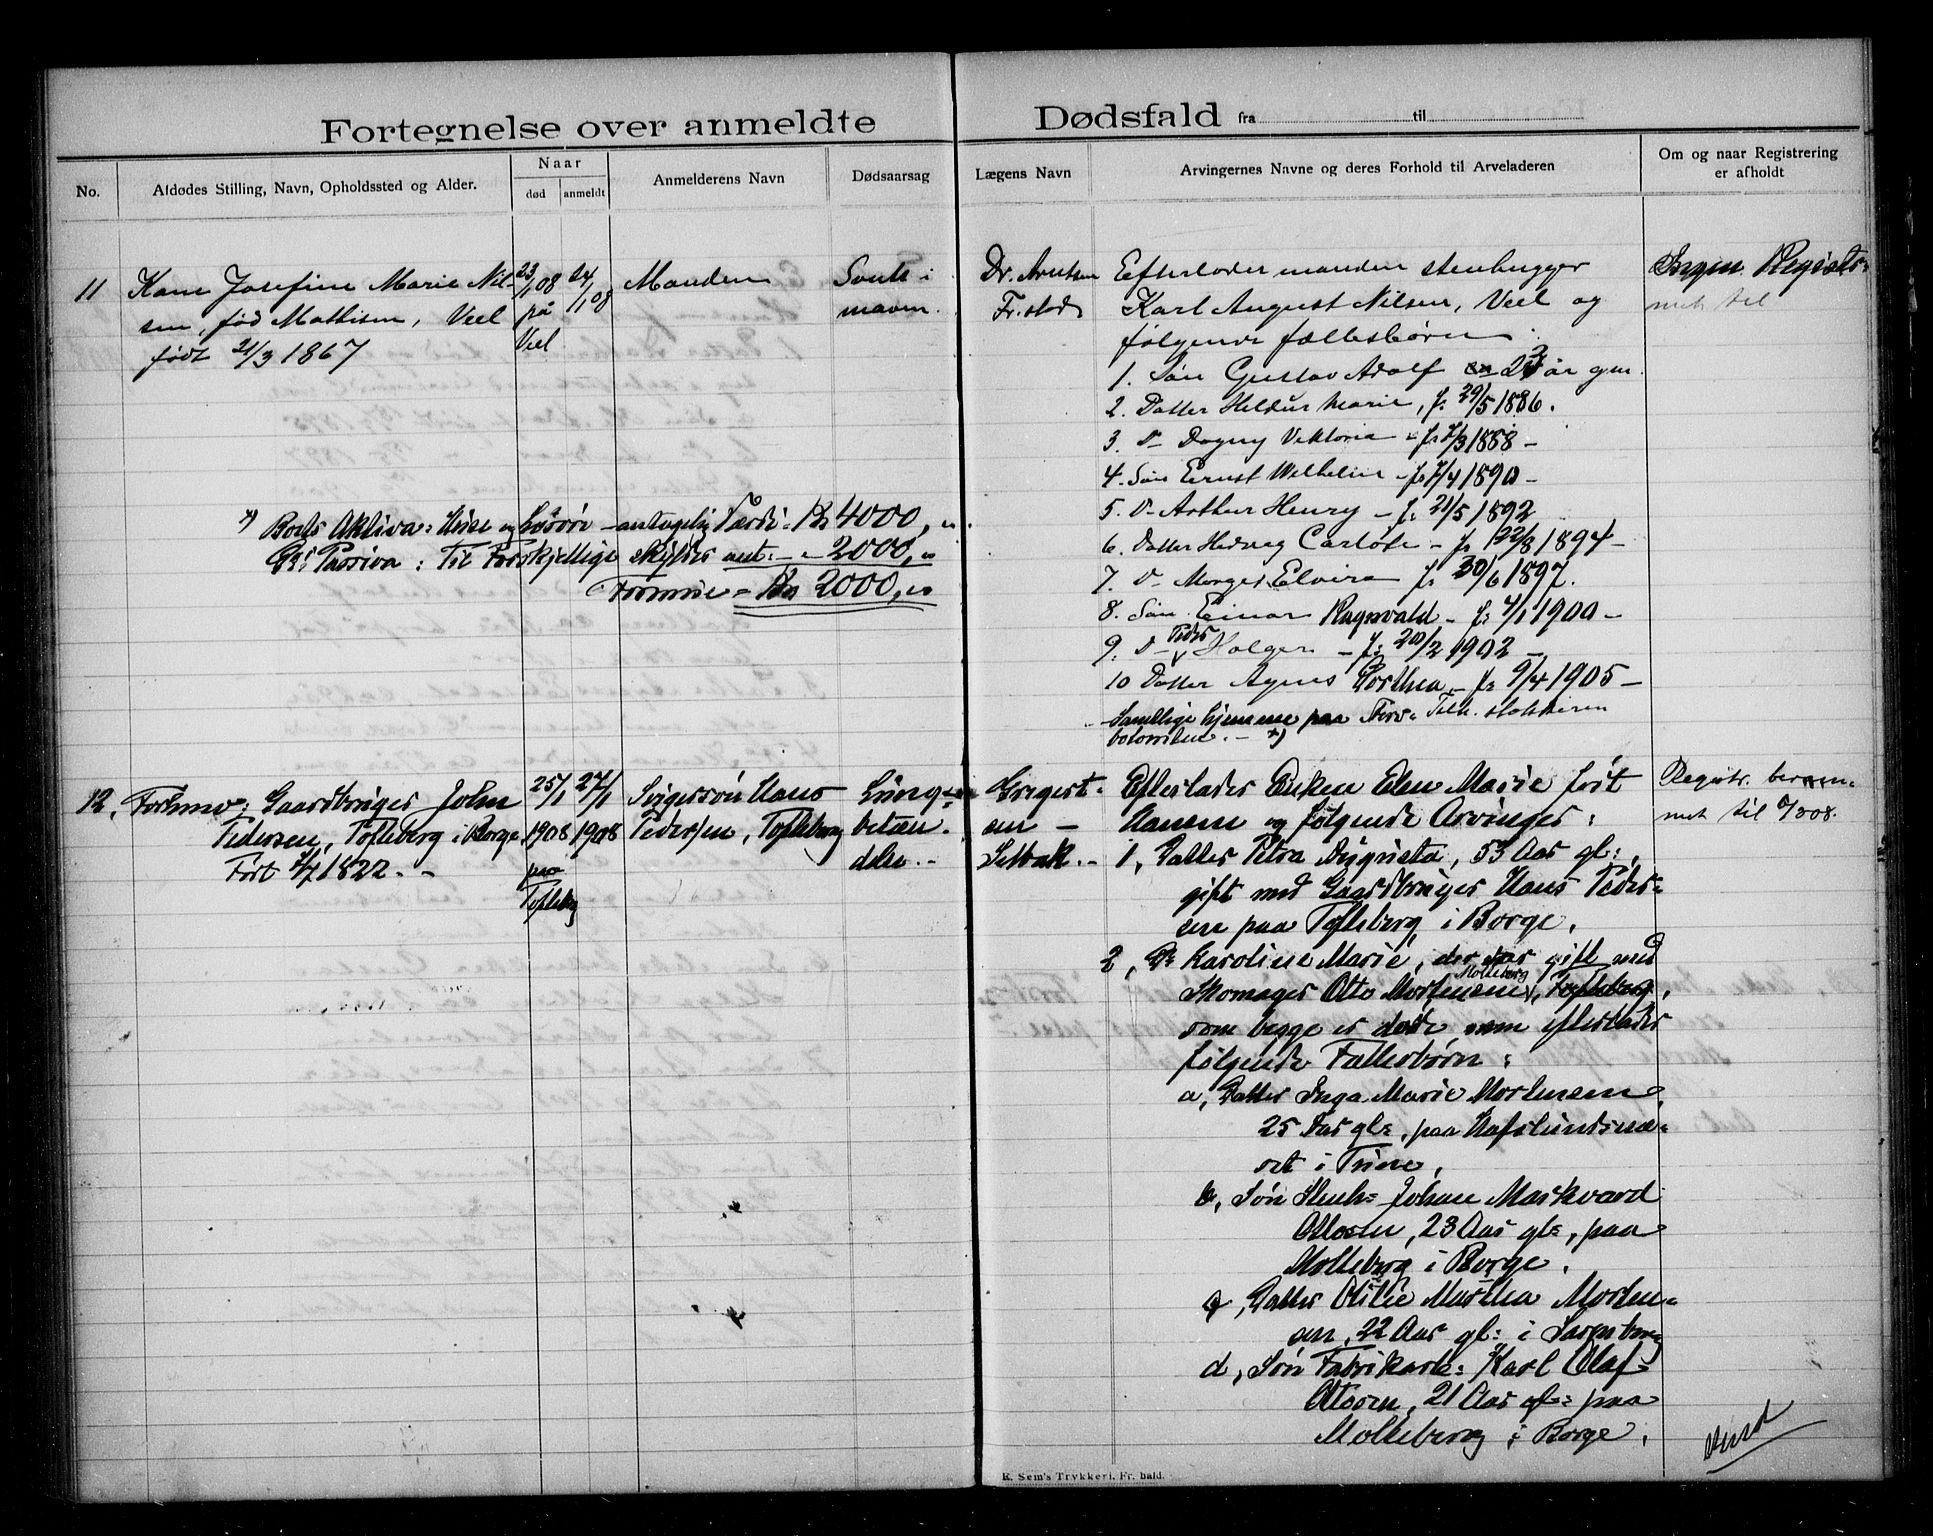 Fortegnelse over anmeldte Dødsfald fra til
No.
Afdødes Stilling, Navn, Opholdssted og Alder.
Naar
død
anmeldt
Anmelderens Navn
Dødsaarsag
Lægens Navn
Arvingernes Navne og deres Forhold til Arveladeren
Om og naar Registrering
er afholdt
11
Kone Josefine Marie Nil-
sen, fød Mathisen, Veel
født 21/3 1867
23/1 08
på
Veel
24/1 08
Manden
maven.
Dr. Arntsen
Fr.stad
Efterlader manden stenhugger
Karl August Nilsen, Veel og
følgende fællesbørn:
1. Søn Gustav Adolf 23 år gm.
2. Datter Hildur Marie, f. 29/5 1886.
3 D- Dagny Viktoria - f. 7/3 1888 -
4. Søn Ernst Wilhelm - f. 7/4 1890 -
5. D- Arthur Henry - f. 21/5 1892
6. Datter Hedvig Carlote - f. 22/8 1894 -
7. D- Elvira f. 30/6 1897.
8. Søn Einar Ragnvald - f. 4/1 1900 -
9. D- Peder Holger - f. 20/2 1902 -
10 Datter Agnes Dorthea - f. 9/4 1905 -
Samtlige hjemme paa
*)
Ingen Registr-
met til
*) Boets Aktiva: Huse og Løsøre - antagelig Værdi - Kr 4000,
Passiva: Til Forskjellige skyldes ant: - - 2000,
Formue - Kr 2000,
12,
Forhenv: Gaardbruger John
Pedersen, Tofteberg i Borge
Født 4/7 1822. -
25/1
1908
paa
Tofteberg
27/1
1908
Svigersøn Hans
Pedersen, Tofteberg
Lunge-
betæn-
delse. -
Gregert-
sen -
Selbak. -
Efterlader Enken Elen Marie født
Hansen og følgende Arvinger:
1, Datter Petra Augusta, 53 Aar gl:,
gift med Gaardbruger Hans Peder-
sen paa Tofteberg i Borge.
2, Do Karoline Marie, der var gift med
Skomager Otto Mortensen, Molteberg, Tofteberg,
som begge er døde men efterlader
følgende Fællesbørn:
a, Datter Inga Marie Mortensen,
25 Aar gl:, paa Hafslundsnæ-
set i Tune,
b, Søn Stenh: Johan Markvard
Ottosen, 23 Aar gl:, paa
Molteberg i Borge.
c, Datter Otilie Martha Morten-
sen, 22 Aar gl: i Sarpsborg
d, Søn Fabrikarb: Karl Olaf
Ottosen, 21 Aar gl: paa
Molteberg i Borge.
Registr. beram-
met til 6/3 08.
K. Sem's Trykkeri, Fr. hald.